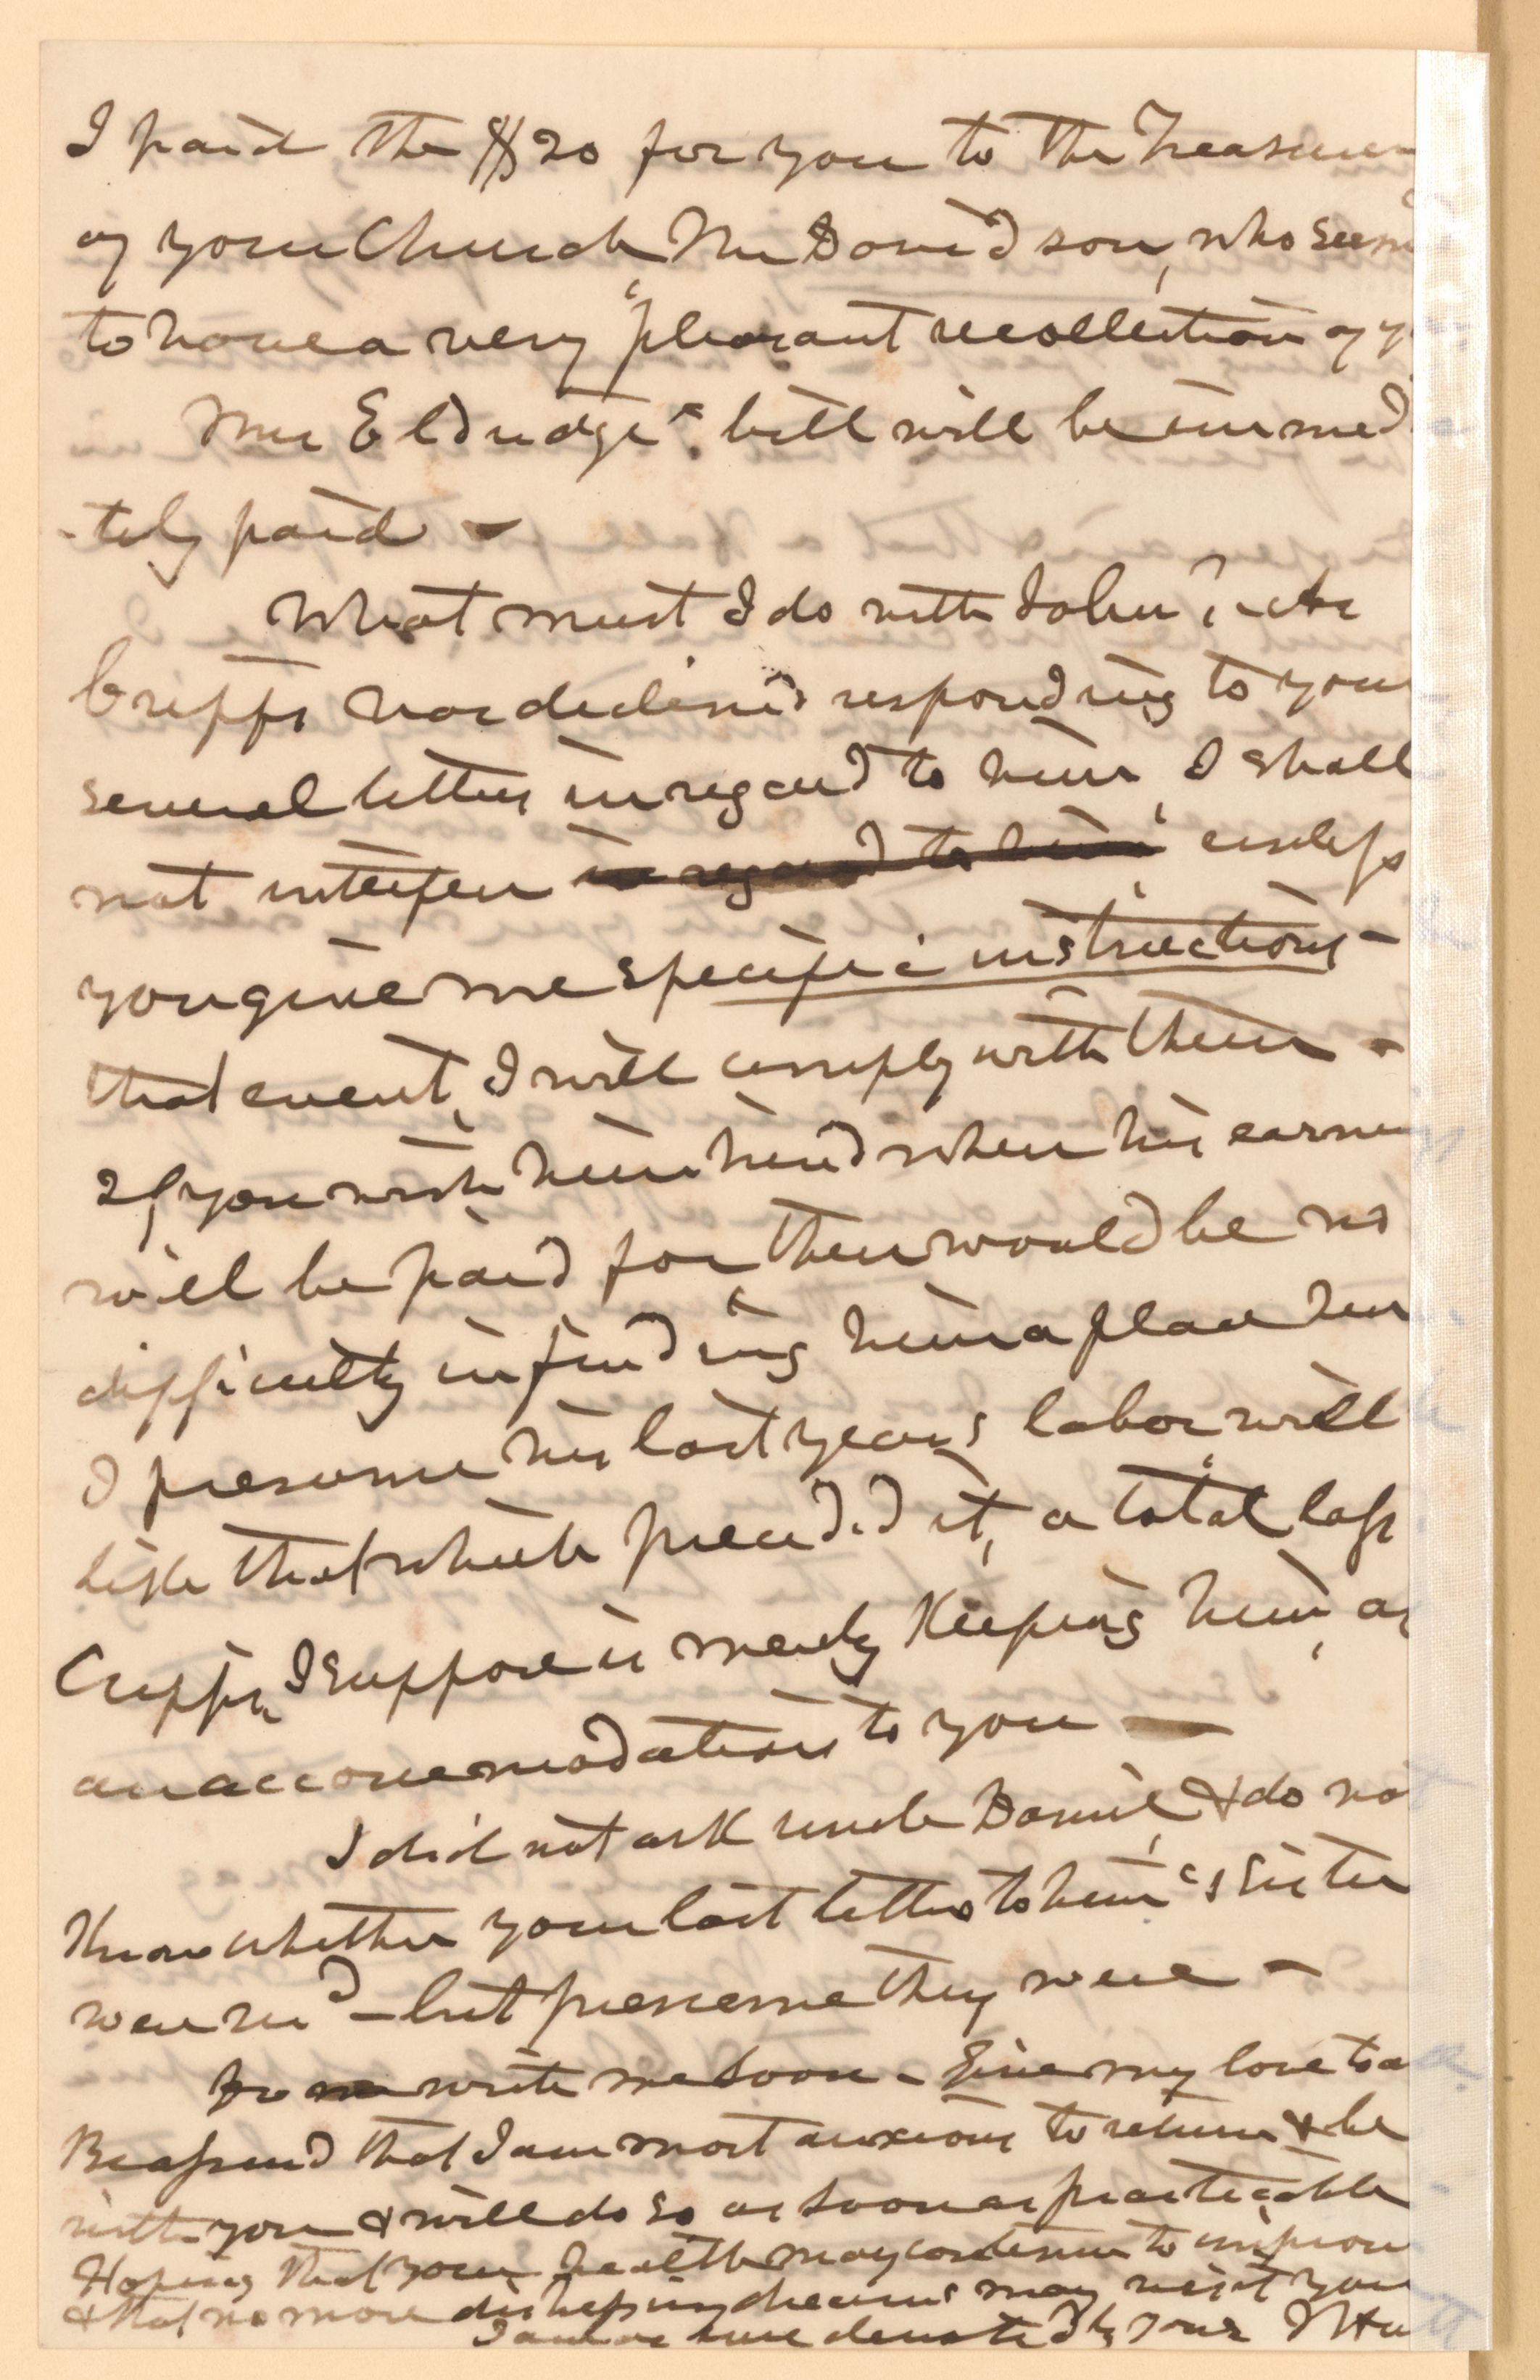 I paid the $20 for you to the Treasurer
of your Church, Mr Davidson, who seems
to have a very pleasant recollection of y
Mr Eldridge's bill will be immed
-tely paid -
What must I do with John? As
Cripps has declined responding to your
several letters in regard to him, I shall
not interfere in regard to him, unless
you give me specific instructions -
that event, I will comply with them -
If you wish him hired when his earni
will be paid for, there would be no
difficulty in finding him a place here
I presume his last year's labor will
like that which preceded it, a total loss
Cripps, I suppose is merely keeping him, as
an accommodation to you -
I did not ask uncle Daniel, & do not
know whether your last letters to him & Sister
were recd - but presume they were -
write me soon - Give my love to a
Be assured that I am most anxious to return & be
with you & will do so as soon as practicable
Hoping that your health may continue to improve
& that no more distressing dreams may visit you
I am as ever devotedly yours